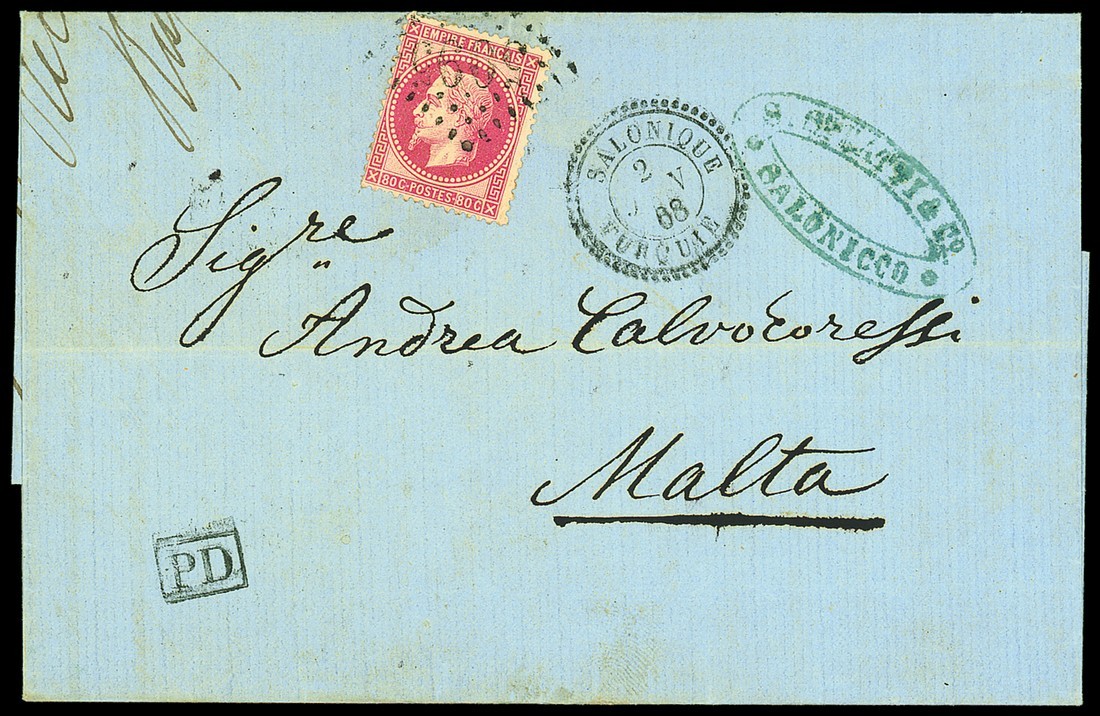 EMPIRE FRANÇAIS
80C·POSTES·80C
SALONIQUE
2
68
TURQUIE
S. & Co.
SALONICCO
Sig.re
Andrea Calvocoressi
Malta
PD